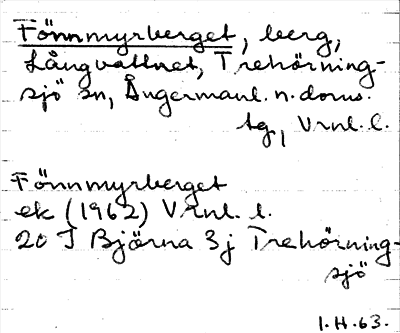 Fönnmyrberget, berg,
Långvattnet, Trehörning-
sjö sn, Ångermanl. n. doms.
tg, Vrnl. l.
Fönnmyrberget
ek (1962) Vrnl. l.
20 I Björna 3j Trehörning-
sjö
I.H.63.